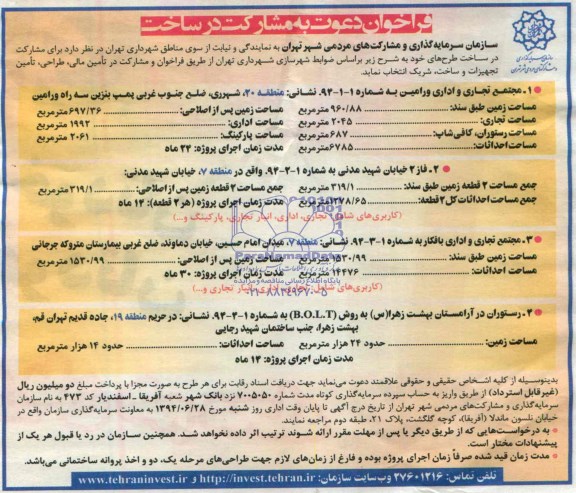 فراخوان دعوت به مشارکت در ساخت
سازمان سرمایه‌گذاری و مشارکت‌های مردمی شهر تهران به نمایندگی و نیابت از سوی مناطق شهرداری تهران در نظر دارد برای مشارکت
در ساخت طرح‌های خود به شرح زیر براساس ضوابط شهرسازی شهرداری تهران از طریق فراخوان و مشارکت در تأمین مالی، طراحی، تأمین
تجهیزات و ساخت، شریک انتخاب نماید.
۱. مجتمع تجاری و اداری ورامین به شماره ۱-۱-۹۴. نشانی: منطقه ۲۰، شهرری، ضلع جنوب غربی پمپ بنزین سه راه ورامین
مساحت زمین طبق سند: ۹۶۰/۸۸ مترمربع مساحت زمین پس از اصلاحی: ۶۹۷/۳۶ مترمربع
مساحت تجاری: ۲۰۴۵ مترمربع مساحت اداری: ۱۹۹۲ مترمربع
مساحت رستوران، کافی‌شاپ: ۶۸۷ مترمربع مساحت پارکینگ: ۲۰۶۱ مترمربع
مساحت احداثات: ۶۷۸۵ مترمربع مدت زمان اجرای پروژه: ۲۴ ماه
۲. فاز ۲ خیابان شهید مدنی به شماره ۱-۲-۹۴. واقع در منطقه ۷، خیابان شهید مدنی:
جمع مساحت ۲ قطعه زمین طبق سند: ۳۱۹/۱ مترمربع جمع مساحت ۲ قطعه زمین پس از اصلاحی: ۳۱۹/۱ مترمربع
جمع مساحت احداثات کل ۲ قطعه: ۲۷۸/۶۵ مترمربع مدت زمان اجرای پروژه (هر ۲ قطعه): ۱۲ ماه
(کاربری‌های شامل: تجاری، اداری، انبار تجاری، پارکینگ و...)
۳. مجتمع تجاری و اداری بافکار به شماره ۱-۳-۹۴. نشانی: منطقه ۷، میدان امام حسین، خیابان دماوند، ضلع غربی بیمارستان متروکه جرجانی
مساحت زمین طبق سند: ۱۵۳۰/۹۹ مترمربع مساحت زمین پس از اصلاحی: ۱۵۳۰/۹۹ مترمربع
مساحت احداثات: ۱۴۴۷۶ مترمربع مدت زمان اجرای پروژه: ۳۰ ماه
(کاربری‌های شامل: تجاری، اداری، انبار تجاری و...)
ParsNamadData
پایگاه اطلاع رسانی مناقصه و مزایده
۰۲۱-۸۸۳۴۹۶۷۰-۵
۴. رستوران در آرامستان بهشت زهرا(س) به روش (B.O.L.T) به شماره ۱-۴-۹۴. نشانی: در حریم منطقه ۱۹، جاده قدیم تهران قم،
بهشت زهرا، جنب ساختمان شهید رجایی
مساحت زمین: حدود ۲۴ هزار مترمربع مساحت احداثات: حدود ۱۴ هزار مترمربع
مدت زمان اجرای پروژه: ۱۴ ماه
بدینوسیله از کلیه اشخاص حقیقی و حقوقی علاقمند دعوت می‌نماید جهت دریافت اسناد رقابت برای هر طرح به صورت مجزا با پرداخت مبلغ دو میلیون ریال
(غیرقابل استرداد) از طریق واریز به حساب سپرده سرمایه‌گذاری کوتاه مدت شماره ۷۰۰۵۰۵۰ نزد بانک شهر شعبه آفریقا ـ اسفندیار کد ۴۷۳ به نام سازمان
سرمایه‌گذاری و مشارکت‌های مردمی شهر تهران از تاریخ درج آگهی تا پایان وقت اداری روز شنبه مورخ ۱۳۹۴/۰۶/۲۸ به معاونت سرمایه‌گذاری سازمان واقع در
خیابان نلسون ماندلا (آفریقا)، کوچه گلگشت، پلاک ۲۱، طبقه دوم مراجعه نمایند.
به درخواست‌هایی که از طریق دیگر یا پس از مهلت مقرر ارائه شوند ترتیب اثر داده نخواهد شد. همچنین سازمان در رد یا قبول هر یک از
پیشنهادات مختار است.
مدت زمان قید شده صرفاً زمان اجرای پروژه بوده و فارغ از زمان‌های لازم جهت طراحی‌های مرحله یک، دو و اخذ پروانه ساختمانی می‌باشد.
تلفن تماس: ۲۷۶۰۱۲۱۶ وب‌سایت سازمان: http://invest.tehran.ir و www.tehraninvest.ir